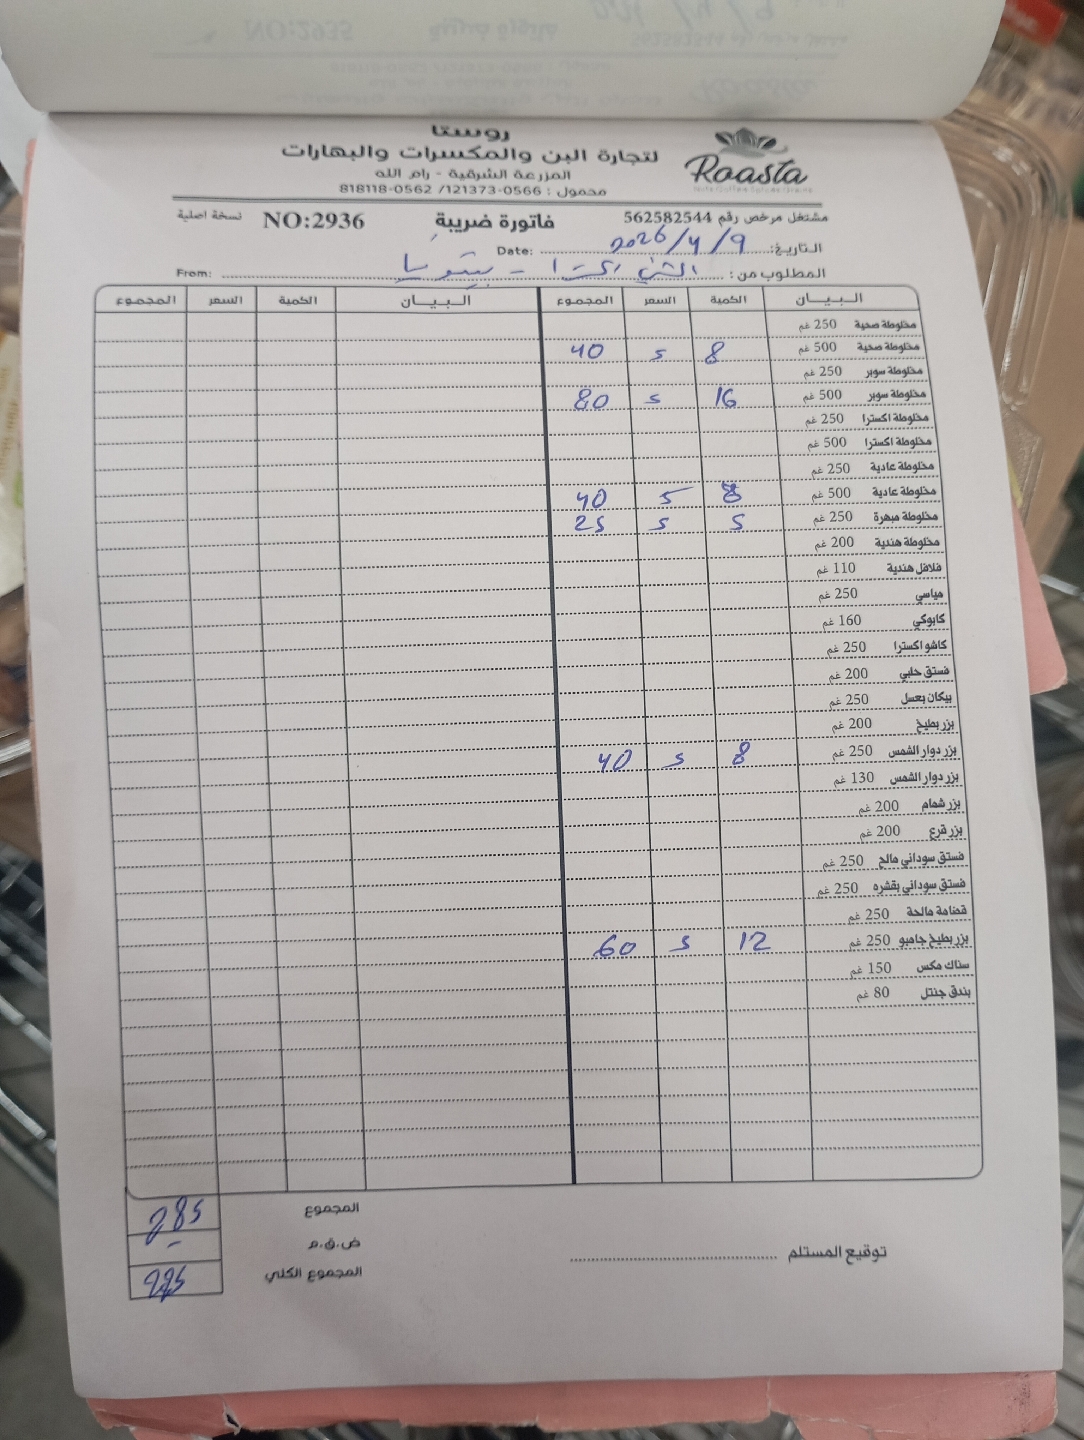 روستا
لتجارة البن والمكسرات والبهارات
المزرعة الشرقية - رام الله
محمول : 0566-121373/ 0562-818118
Roasta
مشتغل مرخص رقم 562582544 فاتورة ضريبة NO:2936 نسخة اصلية
التاريخ: 2026/4/9 Date:
المطلوب من: From:
البيان الكمية السعر المجموع البيان الكمية السعر المجموع
مخلوطة صحية 250 غم
مخلوطة صحية 500 غم 8 5 40
مخلوطة سوبر 250 غم
مخلوطة سوبر 500 غم 16 5 80
مخلوطة اكسترا 250 غم
مخلوطة اكسترا 500 غم
مخلوطة عادية 250 غم
مخلوطة عادية 500 غم 8 5 40
مخلوطة مبهرة 250 غم 5 5 25
مخلوطة هندية 200 غم
فلافل هندية 110 غم
مياسي 250 غم
كابوكي 160 غم
كاشو اكسترا 250 غم
فستق حلبي 200 غم
بيكان بعسل 250 غم
بزر بطيخ 200 غم
بزر دوار الشمس 250 غم 8 5 40
بزر دوار الشمس 130 غم
بزر شمام 200 غم
بزر قرع 200 غم
فستق سوداني مالح 250 غم
فستق سوداني بقشره 250 غم
قضامة مالحة 250 غم
بزر بطيخ جامبو 250 غم 12 5 60
سناك مكس 150 غم
بندق جنتل 80 غم
المجموع 285
ض.ق.م -
المجموع الكلي 285
توقيع المستلم